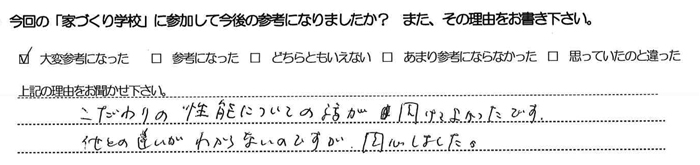 今回の「家づくり学校」に参加して今後の参考になりましたか？ また、その理由をお書き下さい。
☑ 大変参考になった □ 参考になった □ どちらともいえない □ あまり参考にならなかった □ 思っていたのと違った
上記の理由をお聞かせ下さい。
こだわりの性能についての話が聞けてよかったです。
他との違いがわからないのですが、関心しました。